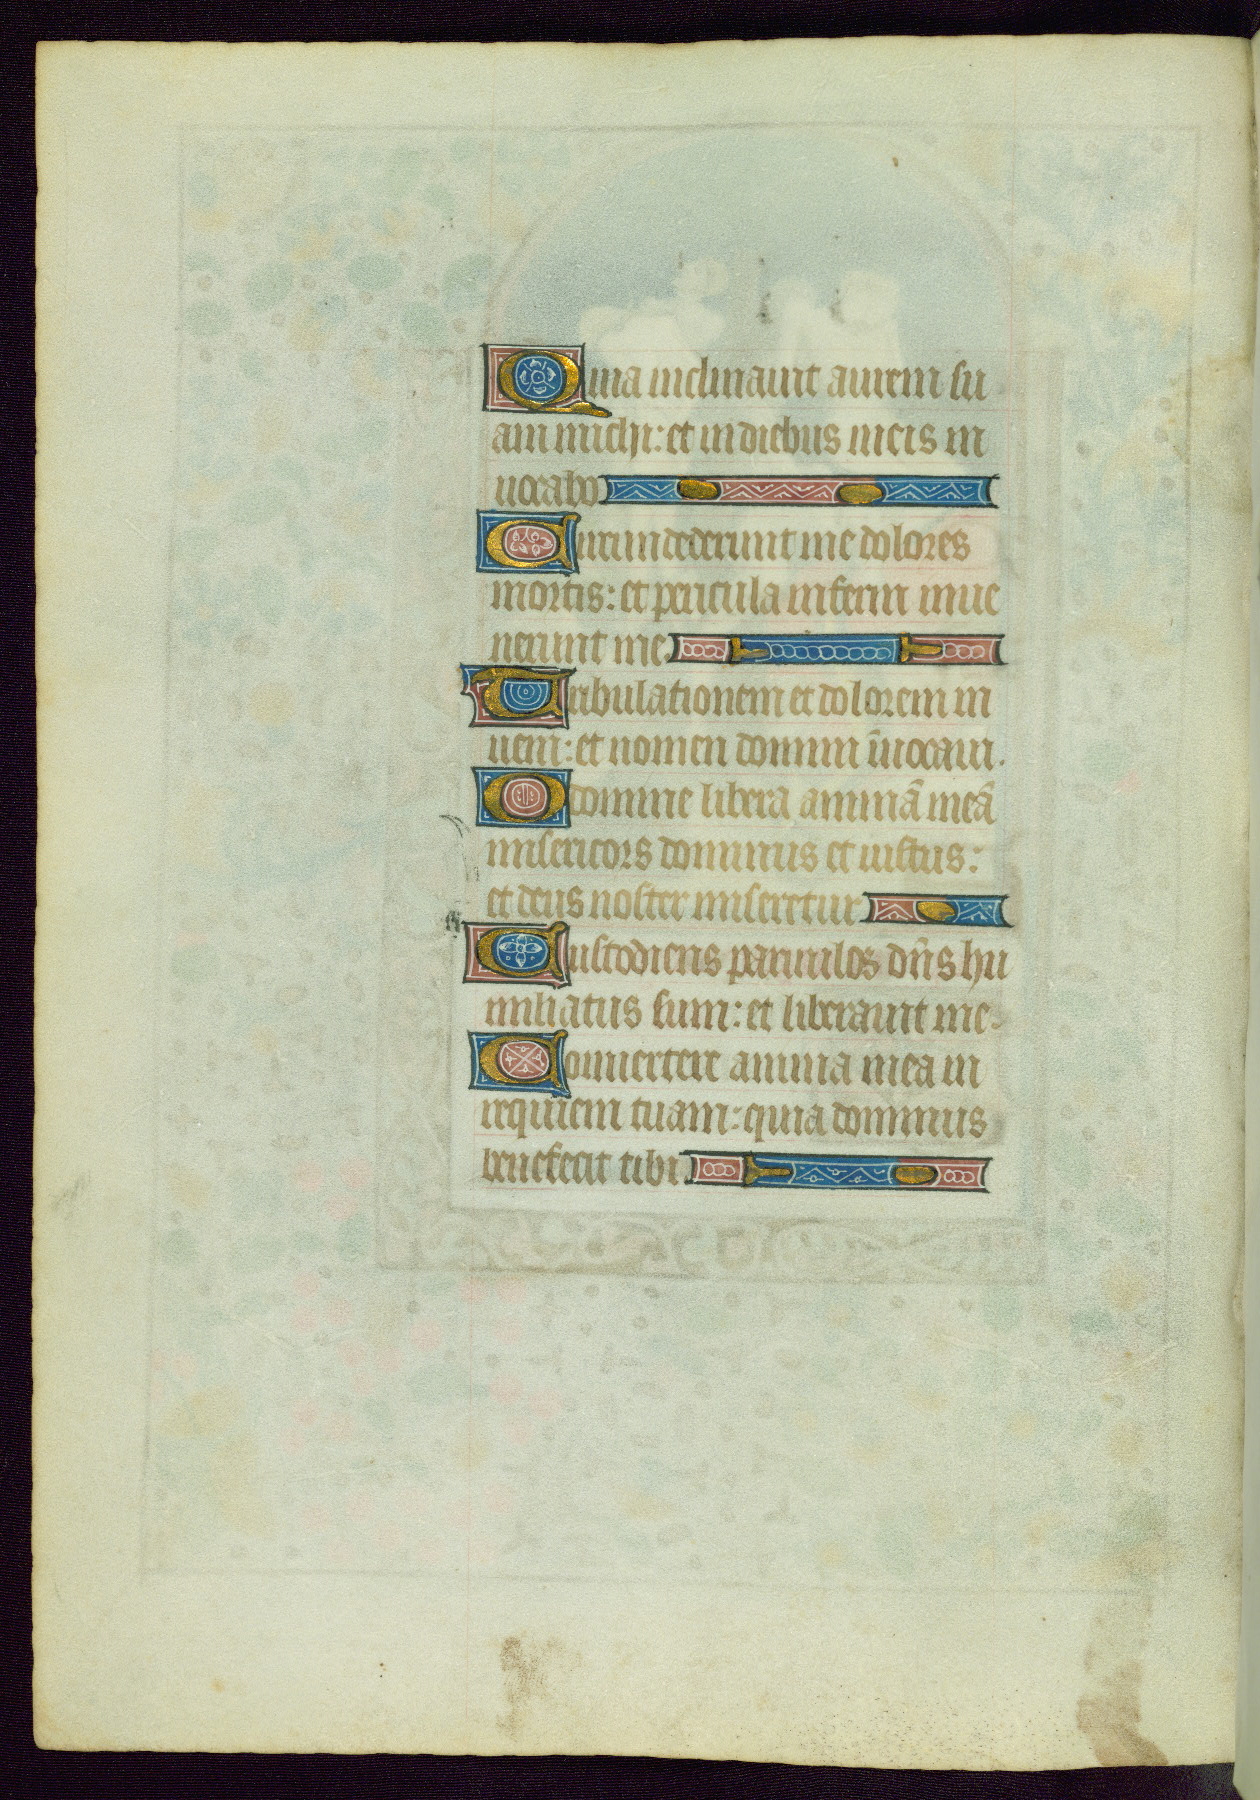 Quia inclinauit aurem su
am michi: et in diebus meis in
uocabo
Circumdederunt me dolores
mortis: et pericula inferni inue
nerunt me.
Tribulationem et dolorem in
ueni: et nomen domini īuocaui.
O domine libera animā meā
misericors dominus et iustus:
et deus noster miseretur
Custodiens paruulos dn̄s hu
miliatus sum: et liberauit me.
Conuertere anima mea in
requiem tuam: quia dominus
benefecit tibi.